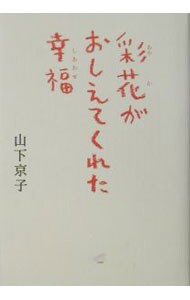 彩花が
おしえてくれた
幸福
山下京子